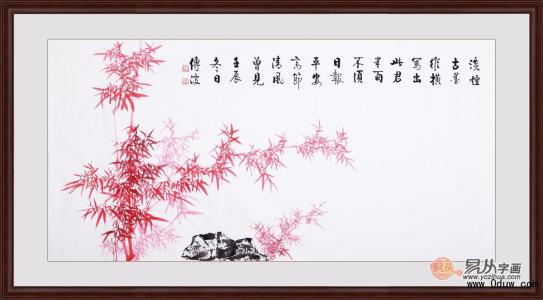 淡煙
古墨
縱橫
寫出
此君
半面
不須
日報
平安
高節
清風
曾見
壬辰
冬日
傳波
易从字画
www.yczihua.com
www.0duw.com